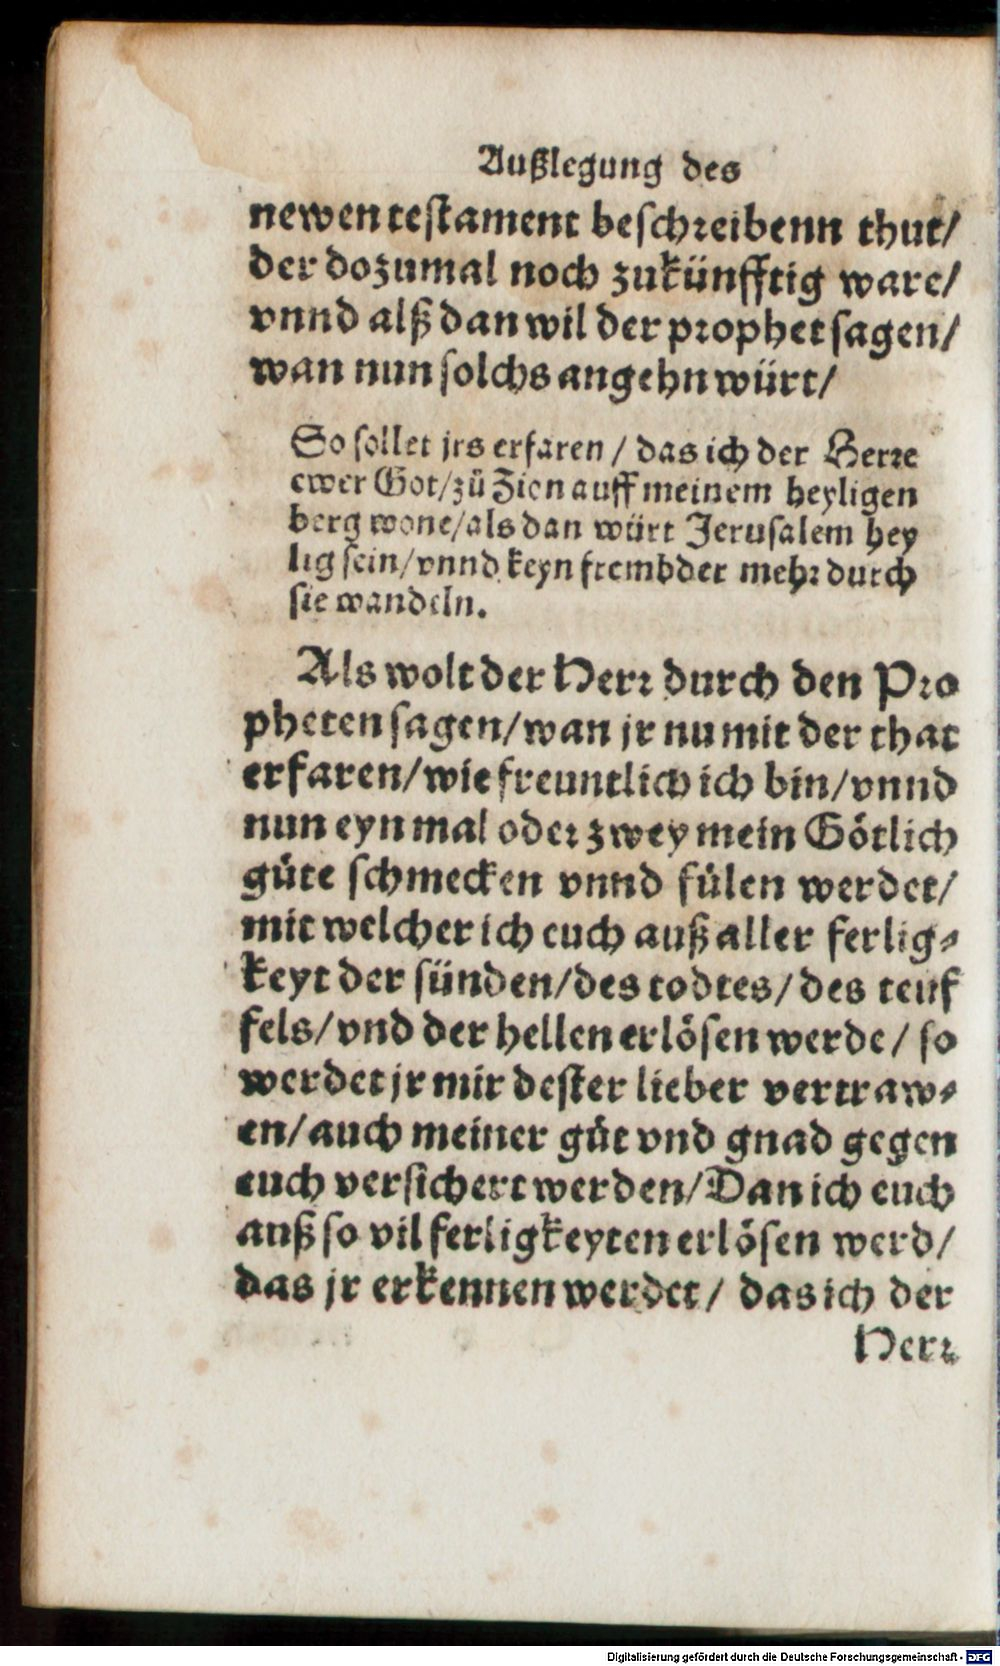 Außlegung des
newen testament beschreibenn thut/
der dozumal noch zukünfftig ware/
vnnd alß dan wil der prophet sagen/
wan nun solchs angehn würt/
So sollet jrs erfaren / das ich der Herre
ewer Got/zů Zion auff meinem heyligen
berg wone/als dan würt Jerusalem hey
lig sein/vnnd keyn frembder mehr durch
sie wandeln.
Als wolt der Herr durch den Pro
pheten sagen/wan jr nu mit der that
erfaren/wie freuntlich ich bin/vnnd
nun eyn mal oder zwey mein Götlich
gůte schmecken vnnd fülen werdet/
mit welcher ich euch auß aller ferlig⸗
keyt der sünden/des todtes/des teuf
fels/vnd der hellen erlösen werde/ so
werdet jr mir dester lieber vertraw⸗
en/auch meiner gůt vnd gnad gegen
euch versichert werden/Dan ich euch
auß so vil ferligkeyten erlösen werd/
das jr erkennen werdet/ das ich der
Herr
Digitalisierung gefördert durch die Deutsche Forschungsgemeinschaft - DFG